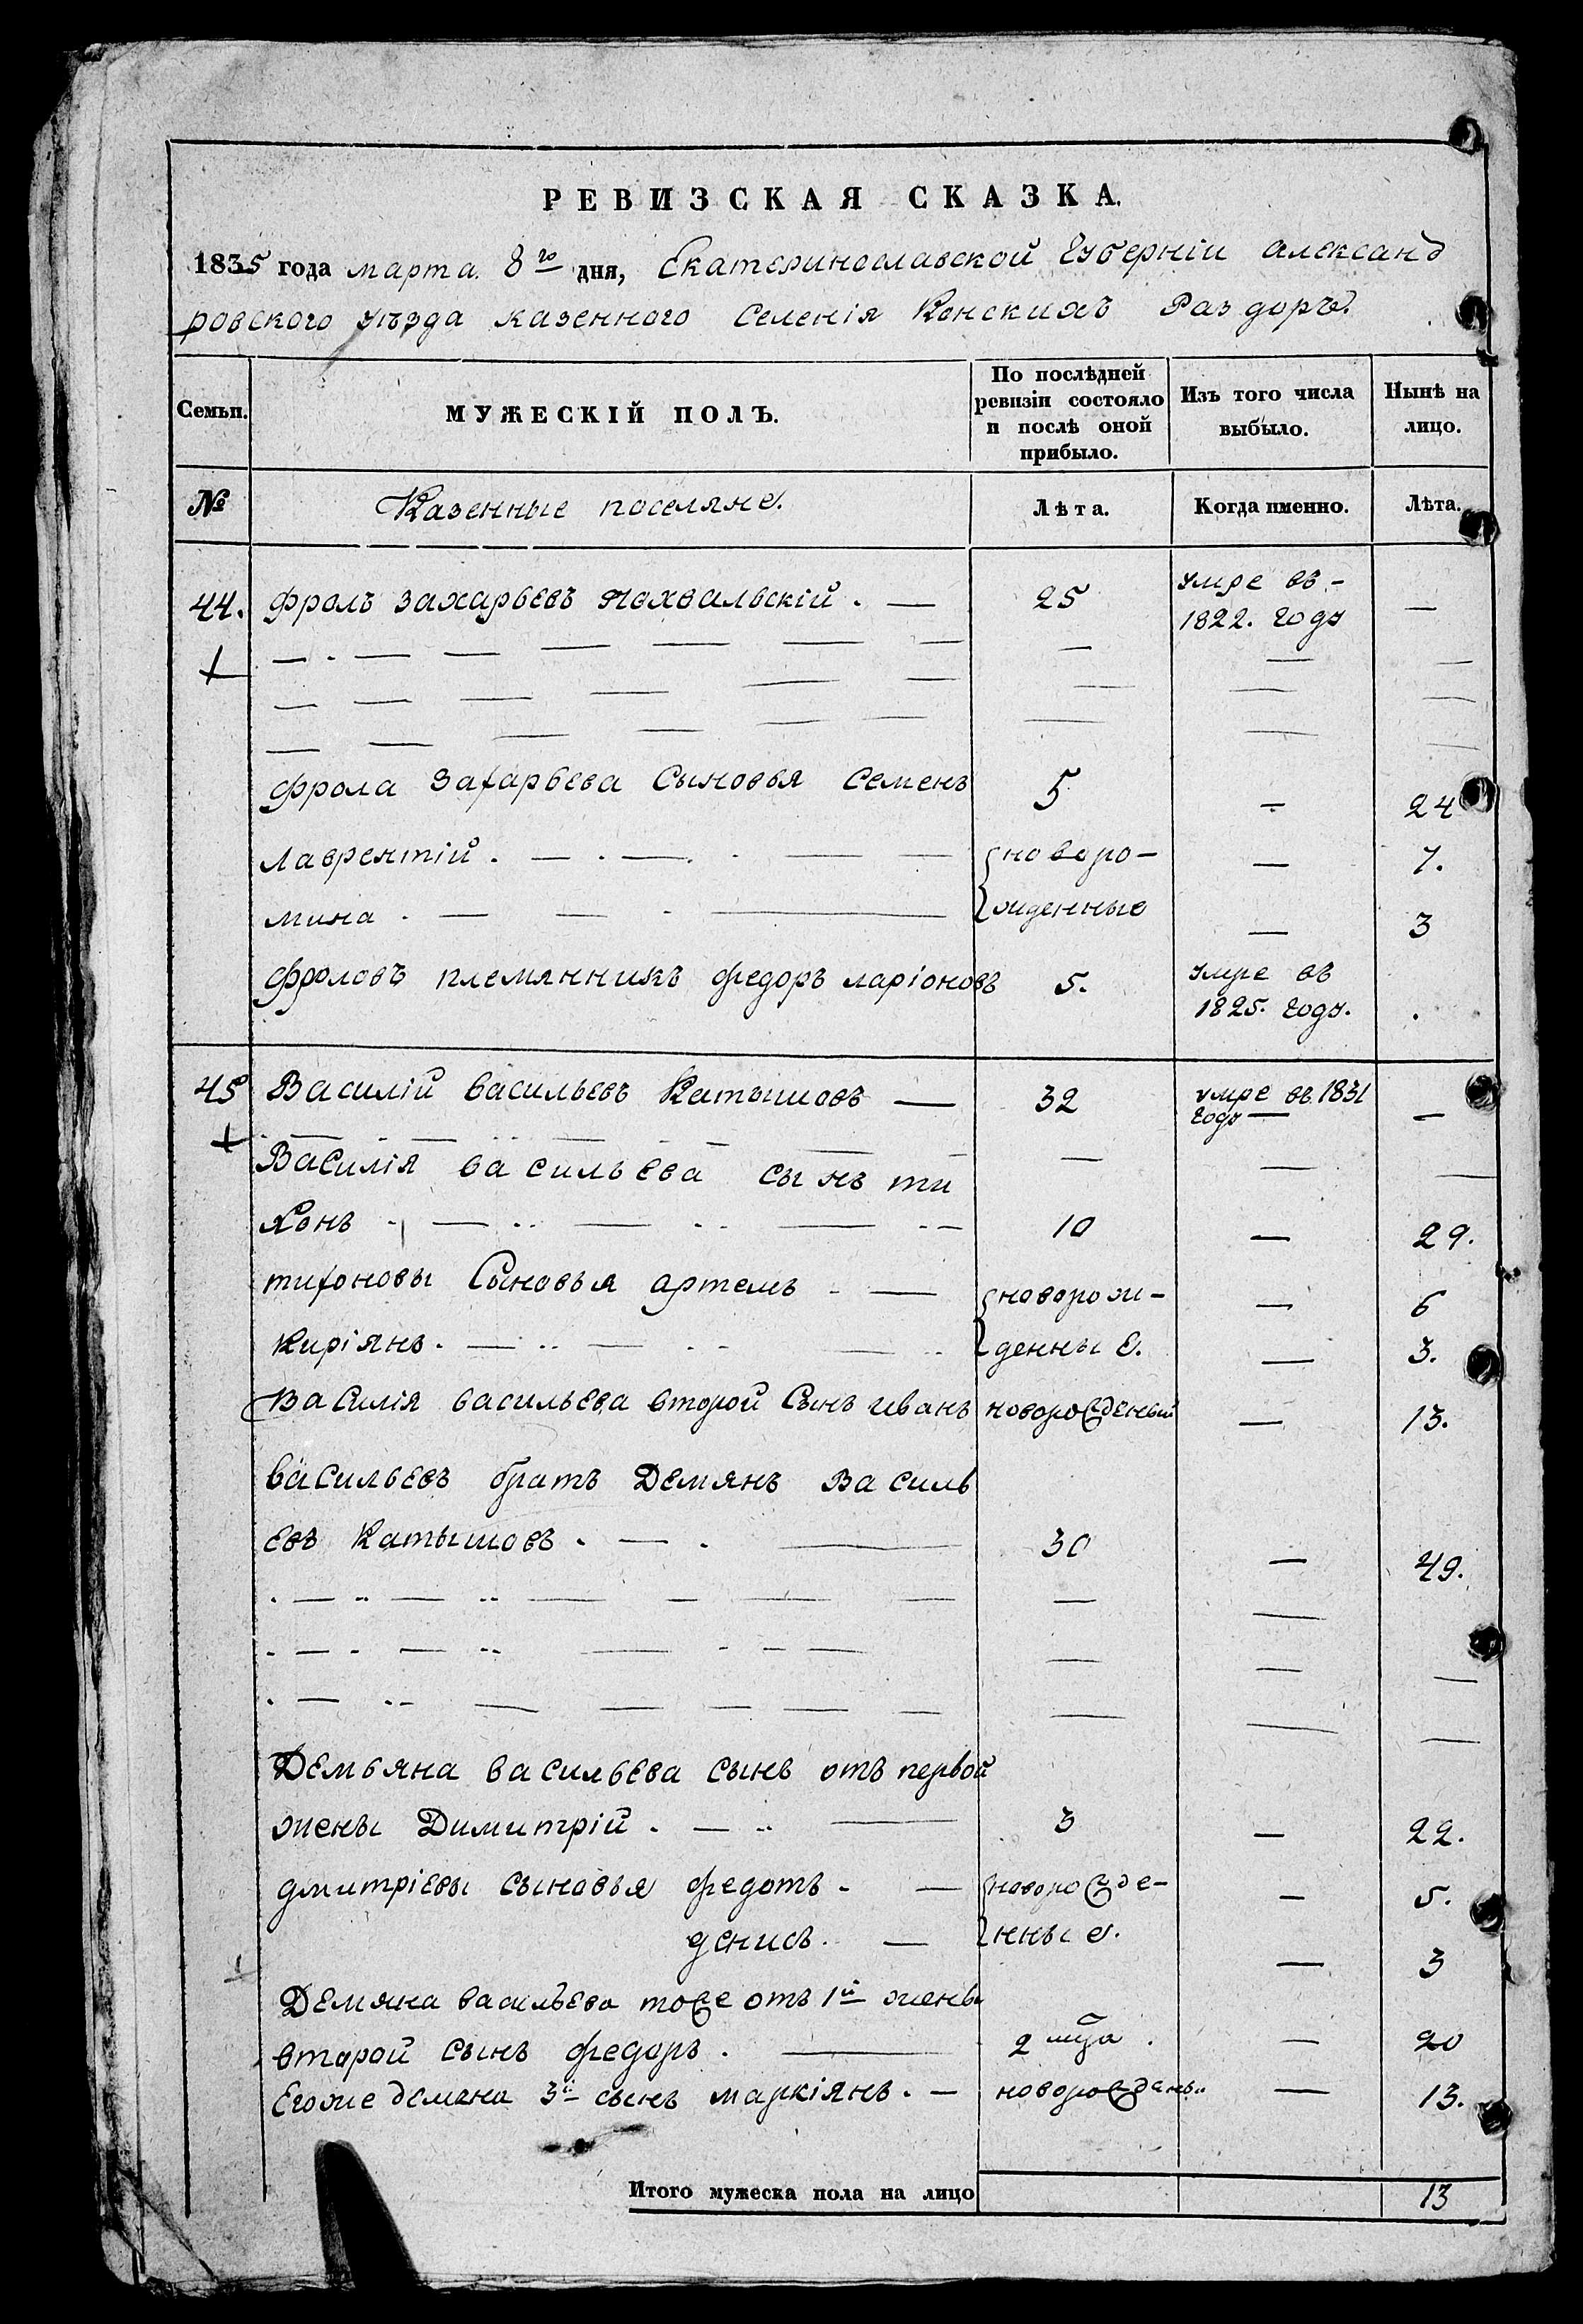 РЕВИЗСКАЯ СКАЗКА.
1835 года марта 8го дня, Екатеринославской Губерніи александ
ровского уѣзда казенного Селенія Конскихъ Раздоръ.
Семьи. МУЖЕСКІЙ ПОЛЪ. По послѣдней ревизіи состояло и послѣ оной прибыло. Изъ того числа выбыло. Нынѣ на лицо.
№ Казенные поселяне. Лѣта. Когда именно. Лѣта.
44. фролъ захарьевъ похвальскій. — 25 умре въ – 1822. году —
фрола Захарьева Сыновья Семенъ 5 — 24
лаврентій. — новоро– — 7.
мина . — жденные — 3
фроловъ племянникъ федоръ ларіоновъ 5. умре въ 1825. году.
45 Василій васильевъ Катышовъ — 32 умре въ 1831 году — —
Василія васильева сынъ ти
хонъ 10 — 29.
тихоновы Сыновья артемъ — новорож– — 6
киріянъ. — денные. — 3.
Василія васильева второй Сынъ иванъ новорожденый — 13.
васильевъ братъ Демянъ Василь
евъ Катышовъ. — 30 — 49.
Демьяна васильева сынъ отъ первой
жены Димитрій. — 3 — 22.
дмитріевы сыновья федотъ. — новорожде– — 5.
денисъ. — нные. — 3
Демяна васильева тоже отъ 1й жены
второй сынъ федоръ. — 2 мца. — 20
Егоже демяна 3й сынъ маркіянъ. – новорожденъ. — 13.
Итого мужеска пола на лицо 13